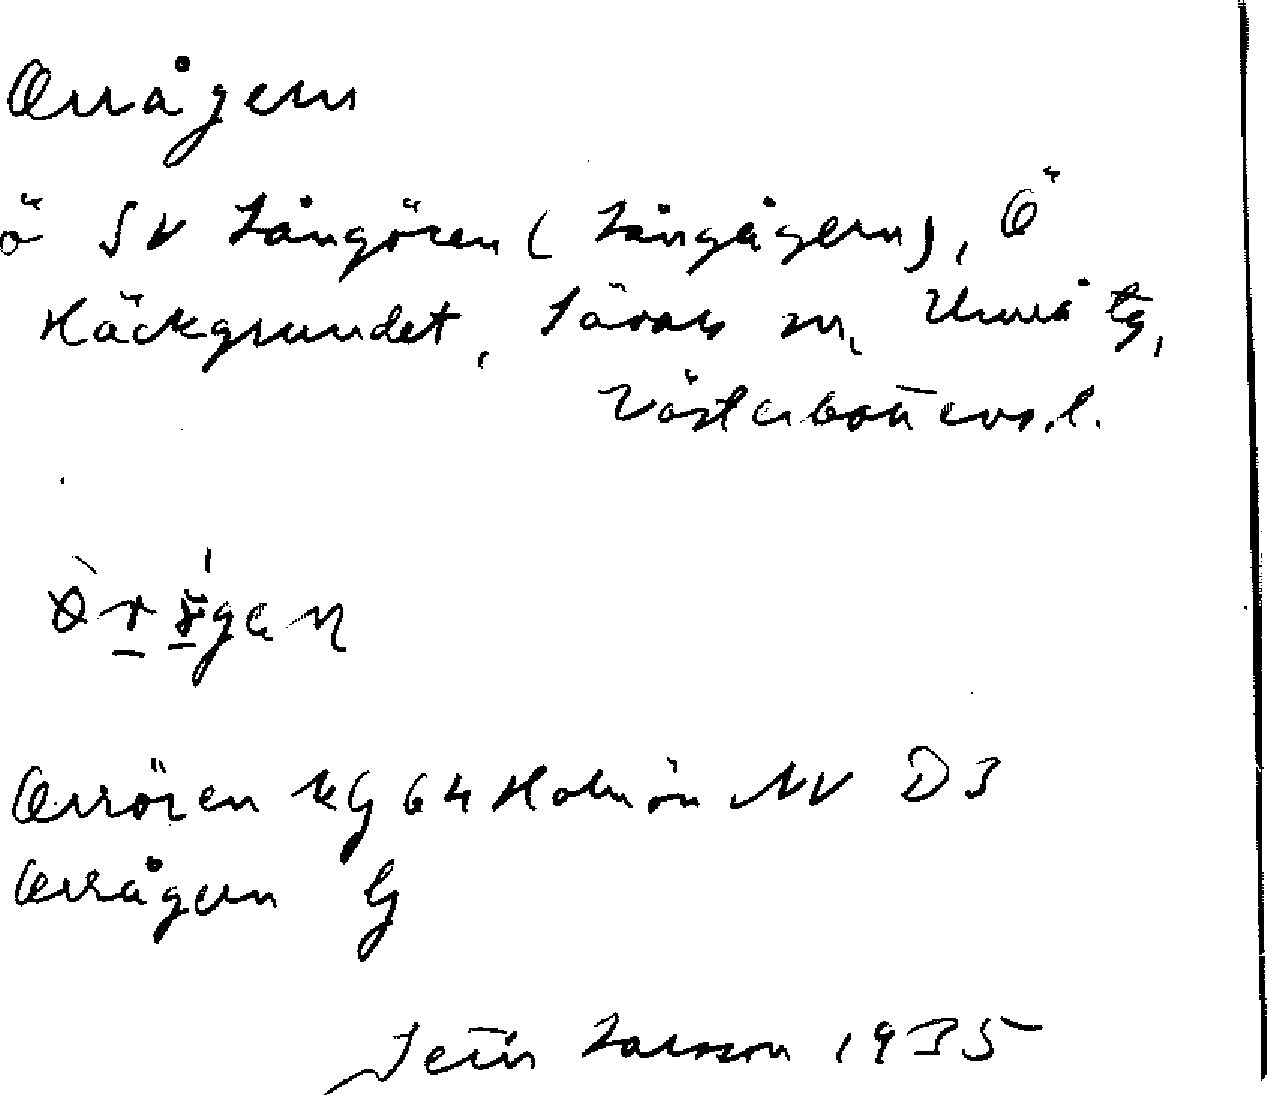 Orrågern
ö SV Långören (Långågern), Ö
Häckgrundet, Sävars sn, Umeå tg,
Västerbottens l.
Orrören kG 64 Holmön NV D3
Orrågern G
Larsson 1935